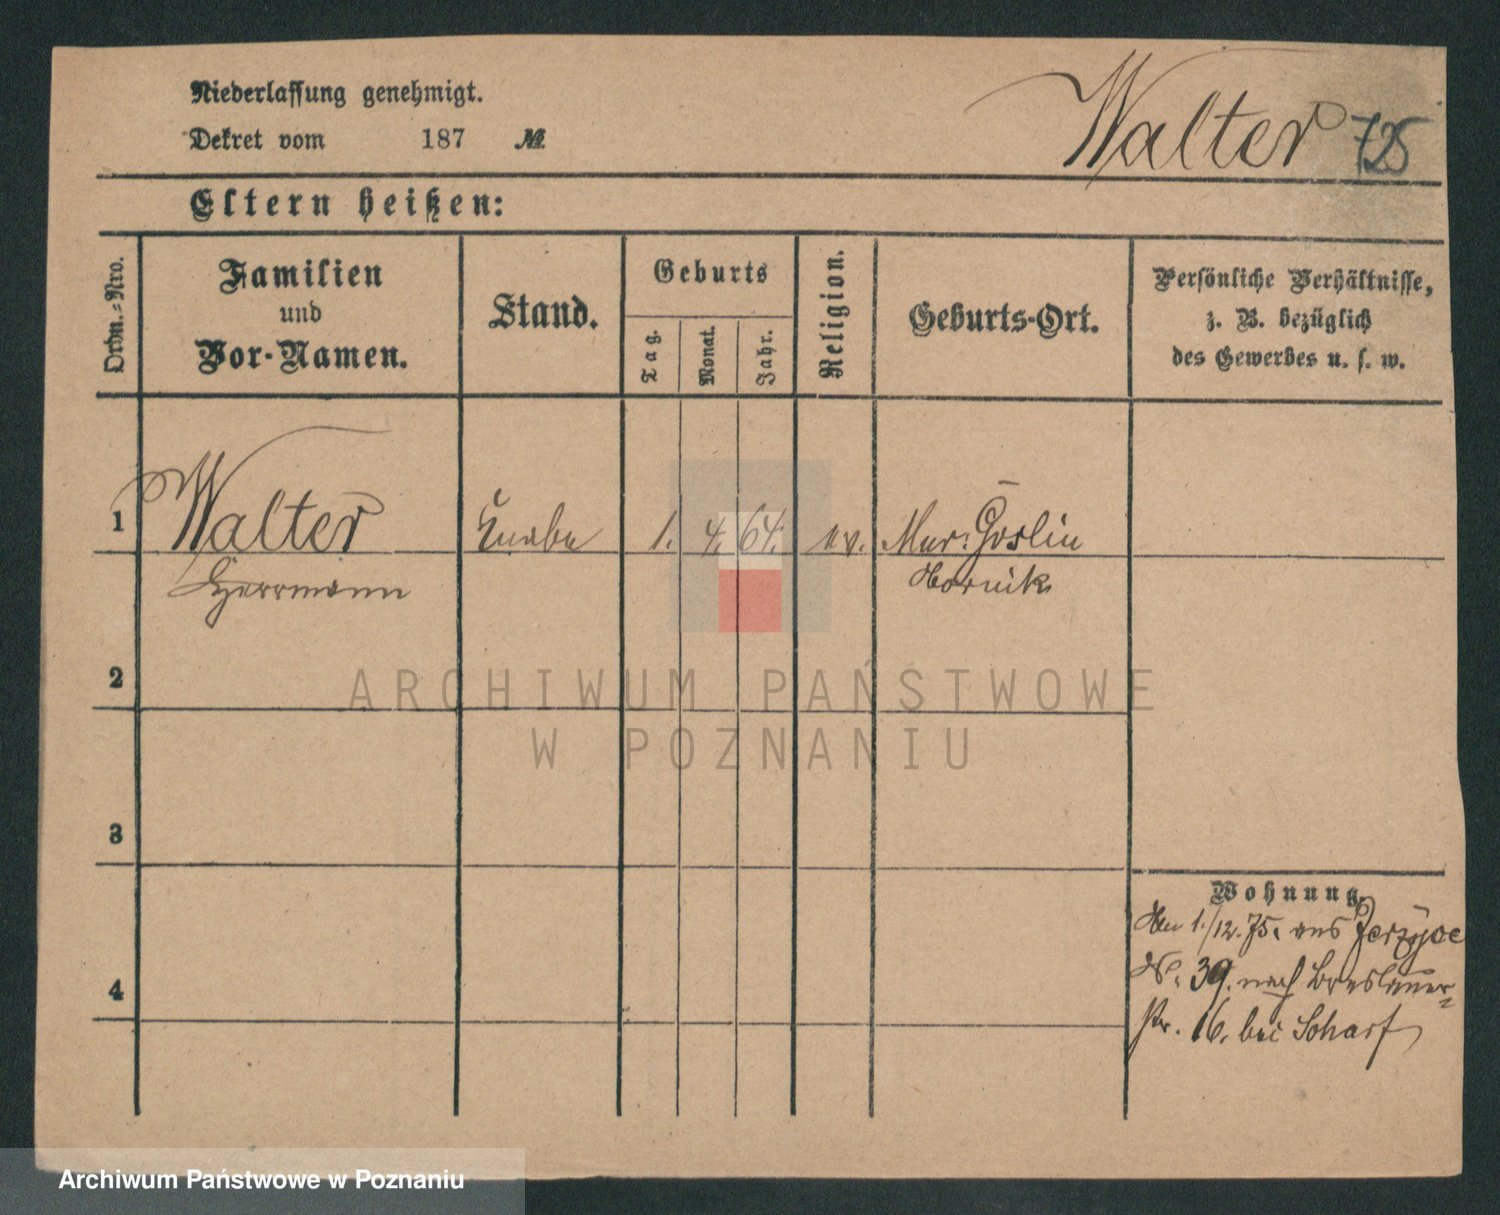 Niederlassung genehmigt.
Walter 725
Dekret vom 187 №
Eltern heißen:
Ordn.-Nro.
Familien
und
Vor-Namen.
Stand.
Geburts
Tag.
Monat.
Jahr.
Religion.
Geburts-Ort.
Persönliche Verhältnisse,
z. B. bezüglich
des Gewerbes u. s. w.
1 Walter Knabe 1. 4. 64. ev. Mur: Goslin
Herrmann
2
3
Wohnung.
Am 1./12.75. aus Jerzyce
N. 39. nach Breslauer-
4
str. 16. bei Scharf
ARCHIWUM PAŃSTWOWE
W POZNANIU
Archiwum Państwowe w Poznaniu